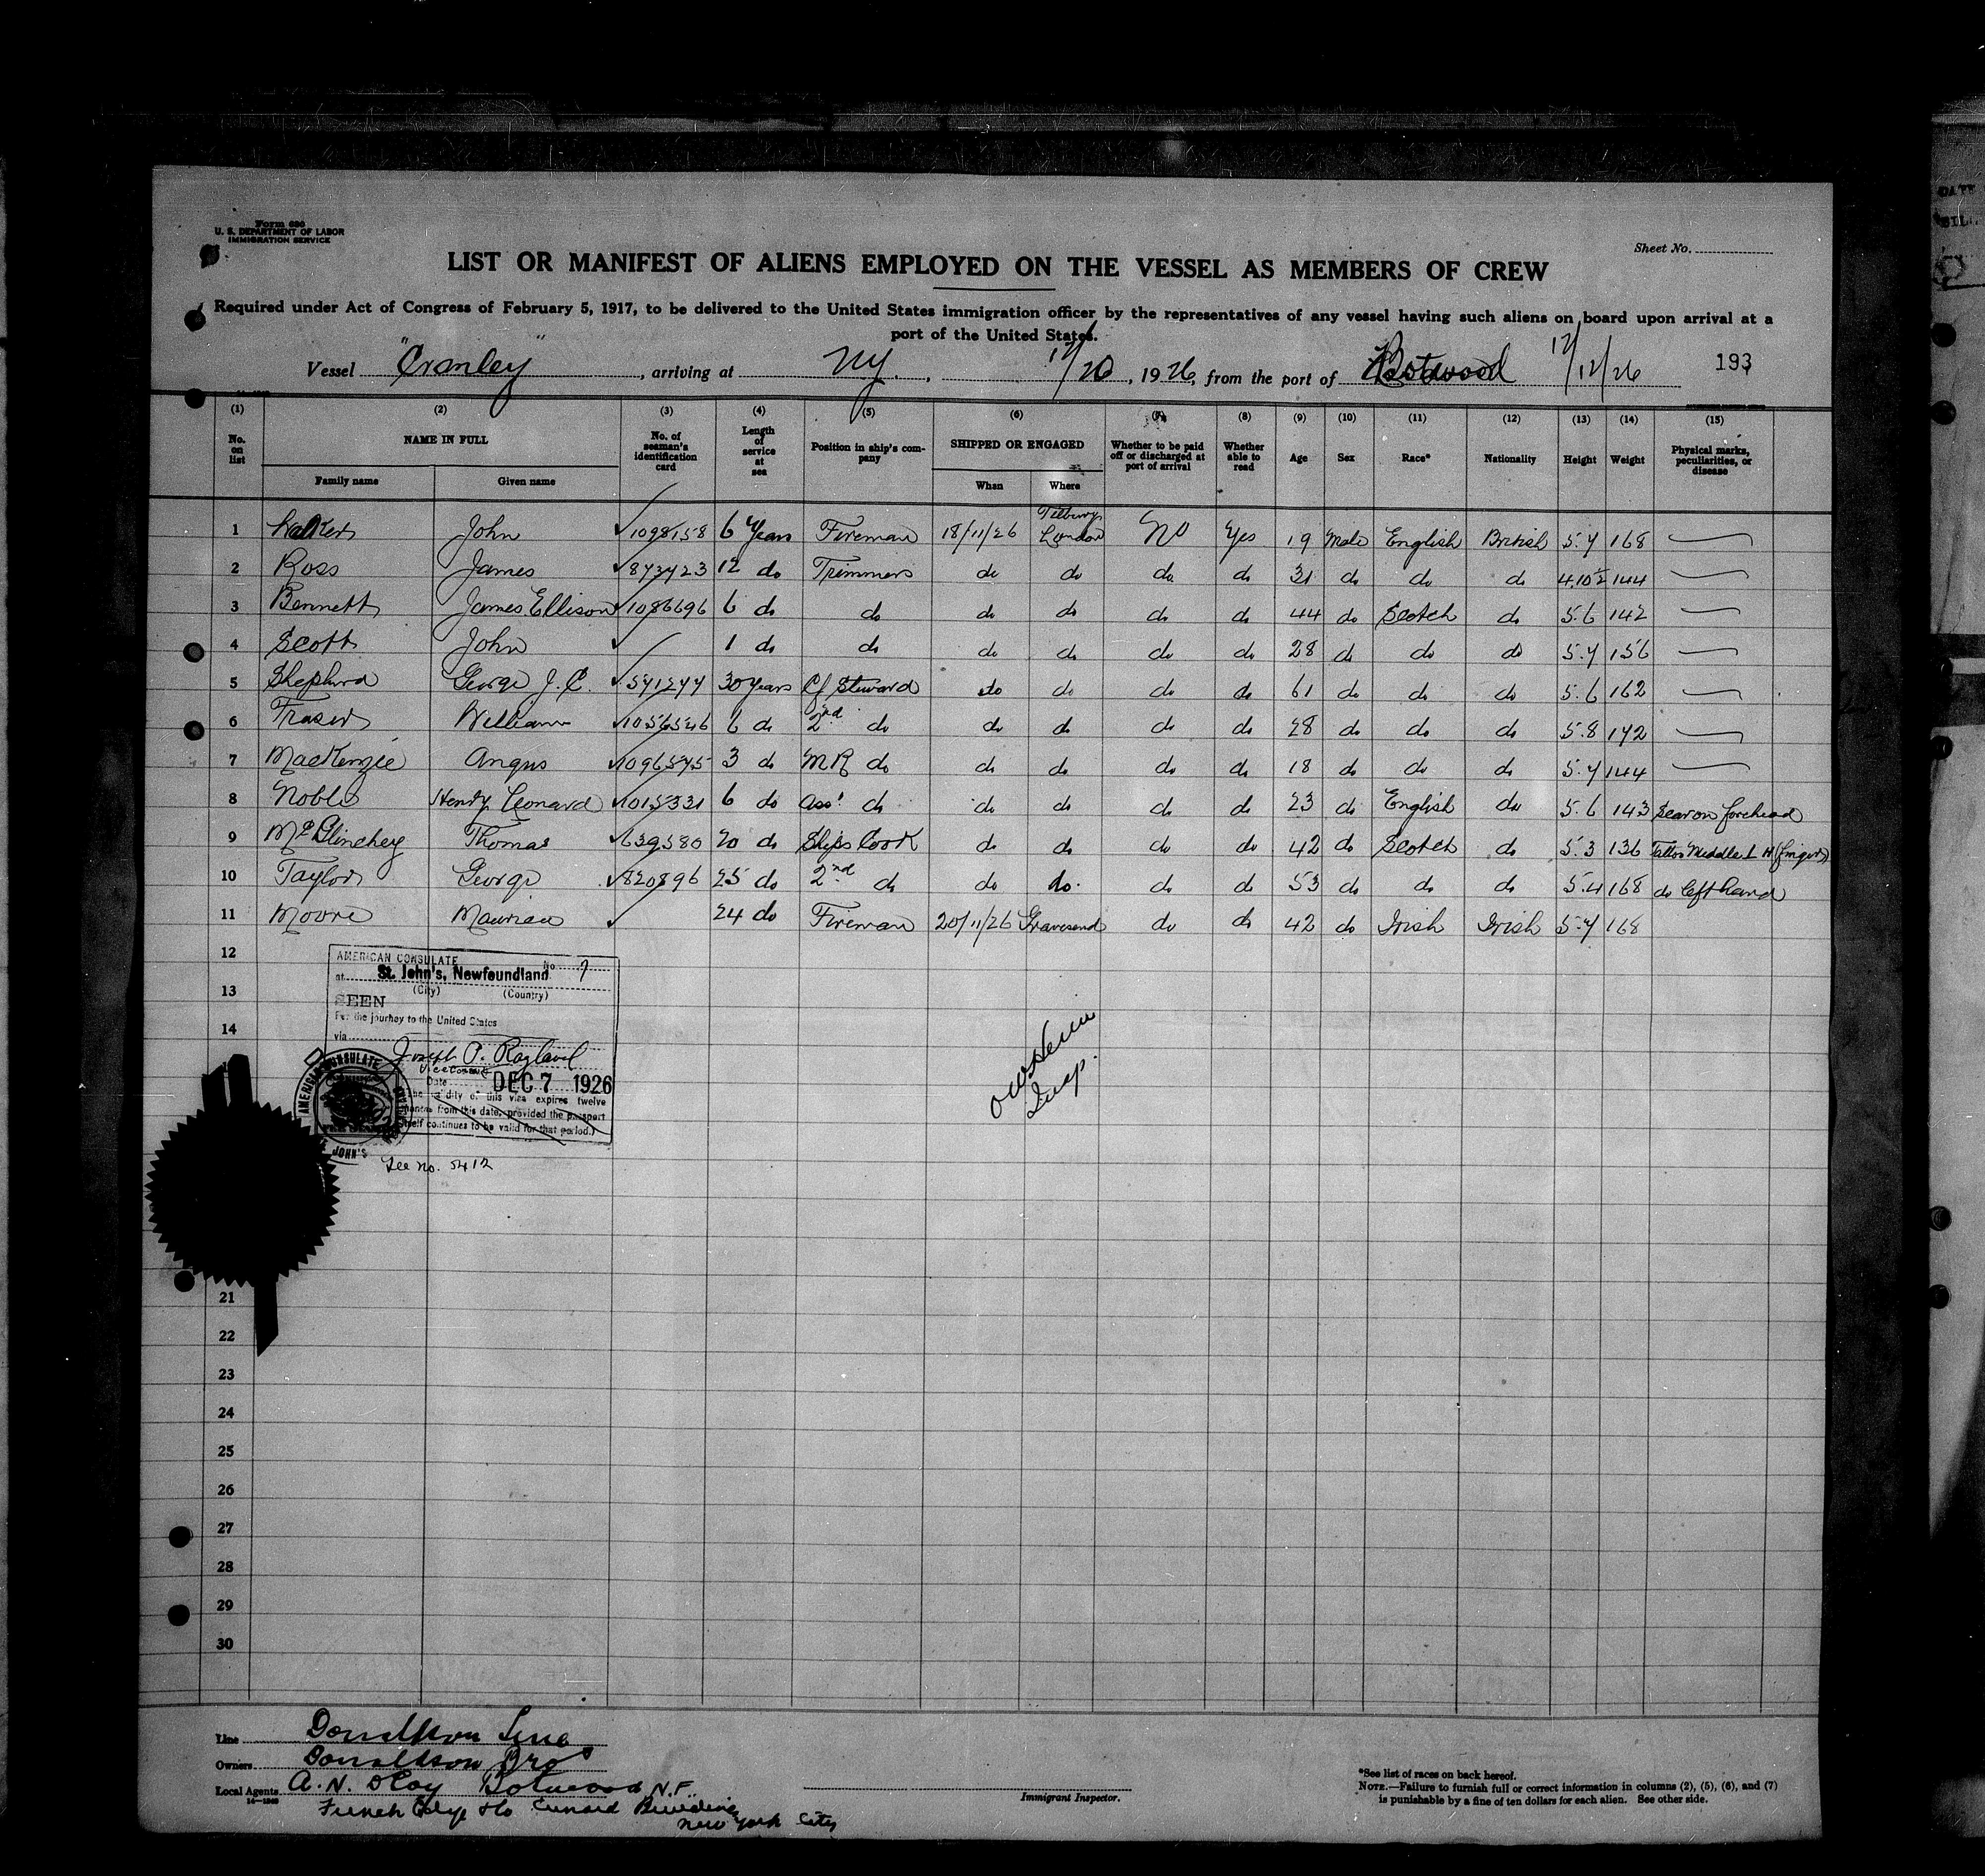 Form 680
U. S. DEPARTMENT OF LABOR
IMMIGRATION SERVICE
Sheet No.
LIST OR MANIFEST OF ALIENS EMPLOYED ON THE VESSEL AS MEMBERS OF CREW
Required under Act of Congress of February 5, 1917, to be delivered to the United States immigration officer by the representatives of any vessel having such aliens on board upon arrival at a
port of the United States.
Vessel "Cranley", arriving at NY., 12/20, 1926, from the port of Botwood 12/12/26 193
(1) (2) (3) (4) (5) (6) (7) (8) (9) (10) (11) (12) (13) (14) (15)
No. on list NAME IN FULL No. of seaman's identification card Length of service at sea Position in ship's company SHIPPED OR ENGAGED Whether to be paid off or discharged at port of arrival Whether able to read Age Sex Race* Nationality Height Weight Physical marks, peculiarities, or disease
Family name Given name When Where
1 Walker John 1098158 6 Years Fireman 18/11/26 Tilbury London No Yes 19 Male English British 5.7 168
2 Ross James 873723 12 do Trimmer do do do do 31 do do do 4.10½ 144
3 Bennett James Ellison 1086696 6 do do do do do do 44 do Scotch do 5.6 142
4 Scott John 1 do do do do do do 28 do do do 5.7 156
5 Shepherd George J. C. 571277 30 Years Cf Steward do do do do 61 do do do 5.6 162
6 Fraser William 1056526 6 do 2nd do do do do do 28 do do do 5.8 142
7 MacKenzie Angus 1096575 3 do MR do do do do do 18 do do do 5.7 144
8 Noble Henry Leonard 1015331 6 do Asst do do do do do 23 do English do 5.6 143 Scar on forehead
9 McGlinchey Thomas 639580 20 do Ships Cook do do do do 42 do Scotch do 5.3 136 Tattoo Middle L H (finger)
10 Taylor George 820896 25 do 2nd do do do. do do 53 do do do 5.4 168 do left hand
11 Moore Maurice 24 do Fireman 20/11/26 Gravesend do do 42 do Irish Irish 5.7 168
12
13
14
AMERICAN CONSULATE No. 7
at St. John's, Newfoundland
(City) (Country)
SEEN
For the journey to the United States
via
Joseph P. Ragland
Vice Consul
Date DEC 7 1926
The validity of this visa expires twelve
months from this date, provided the passport
itself continues to be valid for that period.)
AMERICAN CONSULATE
JOHN'S
Fee No. 5412
Insp.
21
22
23
24
25
26
27
28
29
30
Line Donaldson Line
Owners Donaldson Bros
Local Agents A. N. Botwood N.F.
French Edye & Co Cunard Building
New York City
Immigrant Inspector.
*See list of races on back hereof.
NOTE.—Failure to furnish full or correct information in columns (2), (5), (6), and (7)
is punishable by a fine of ten dollars for each alien. See other side.